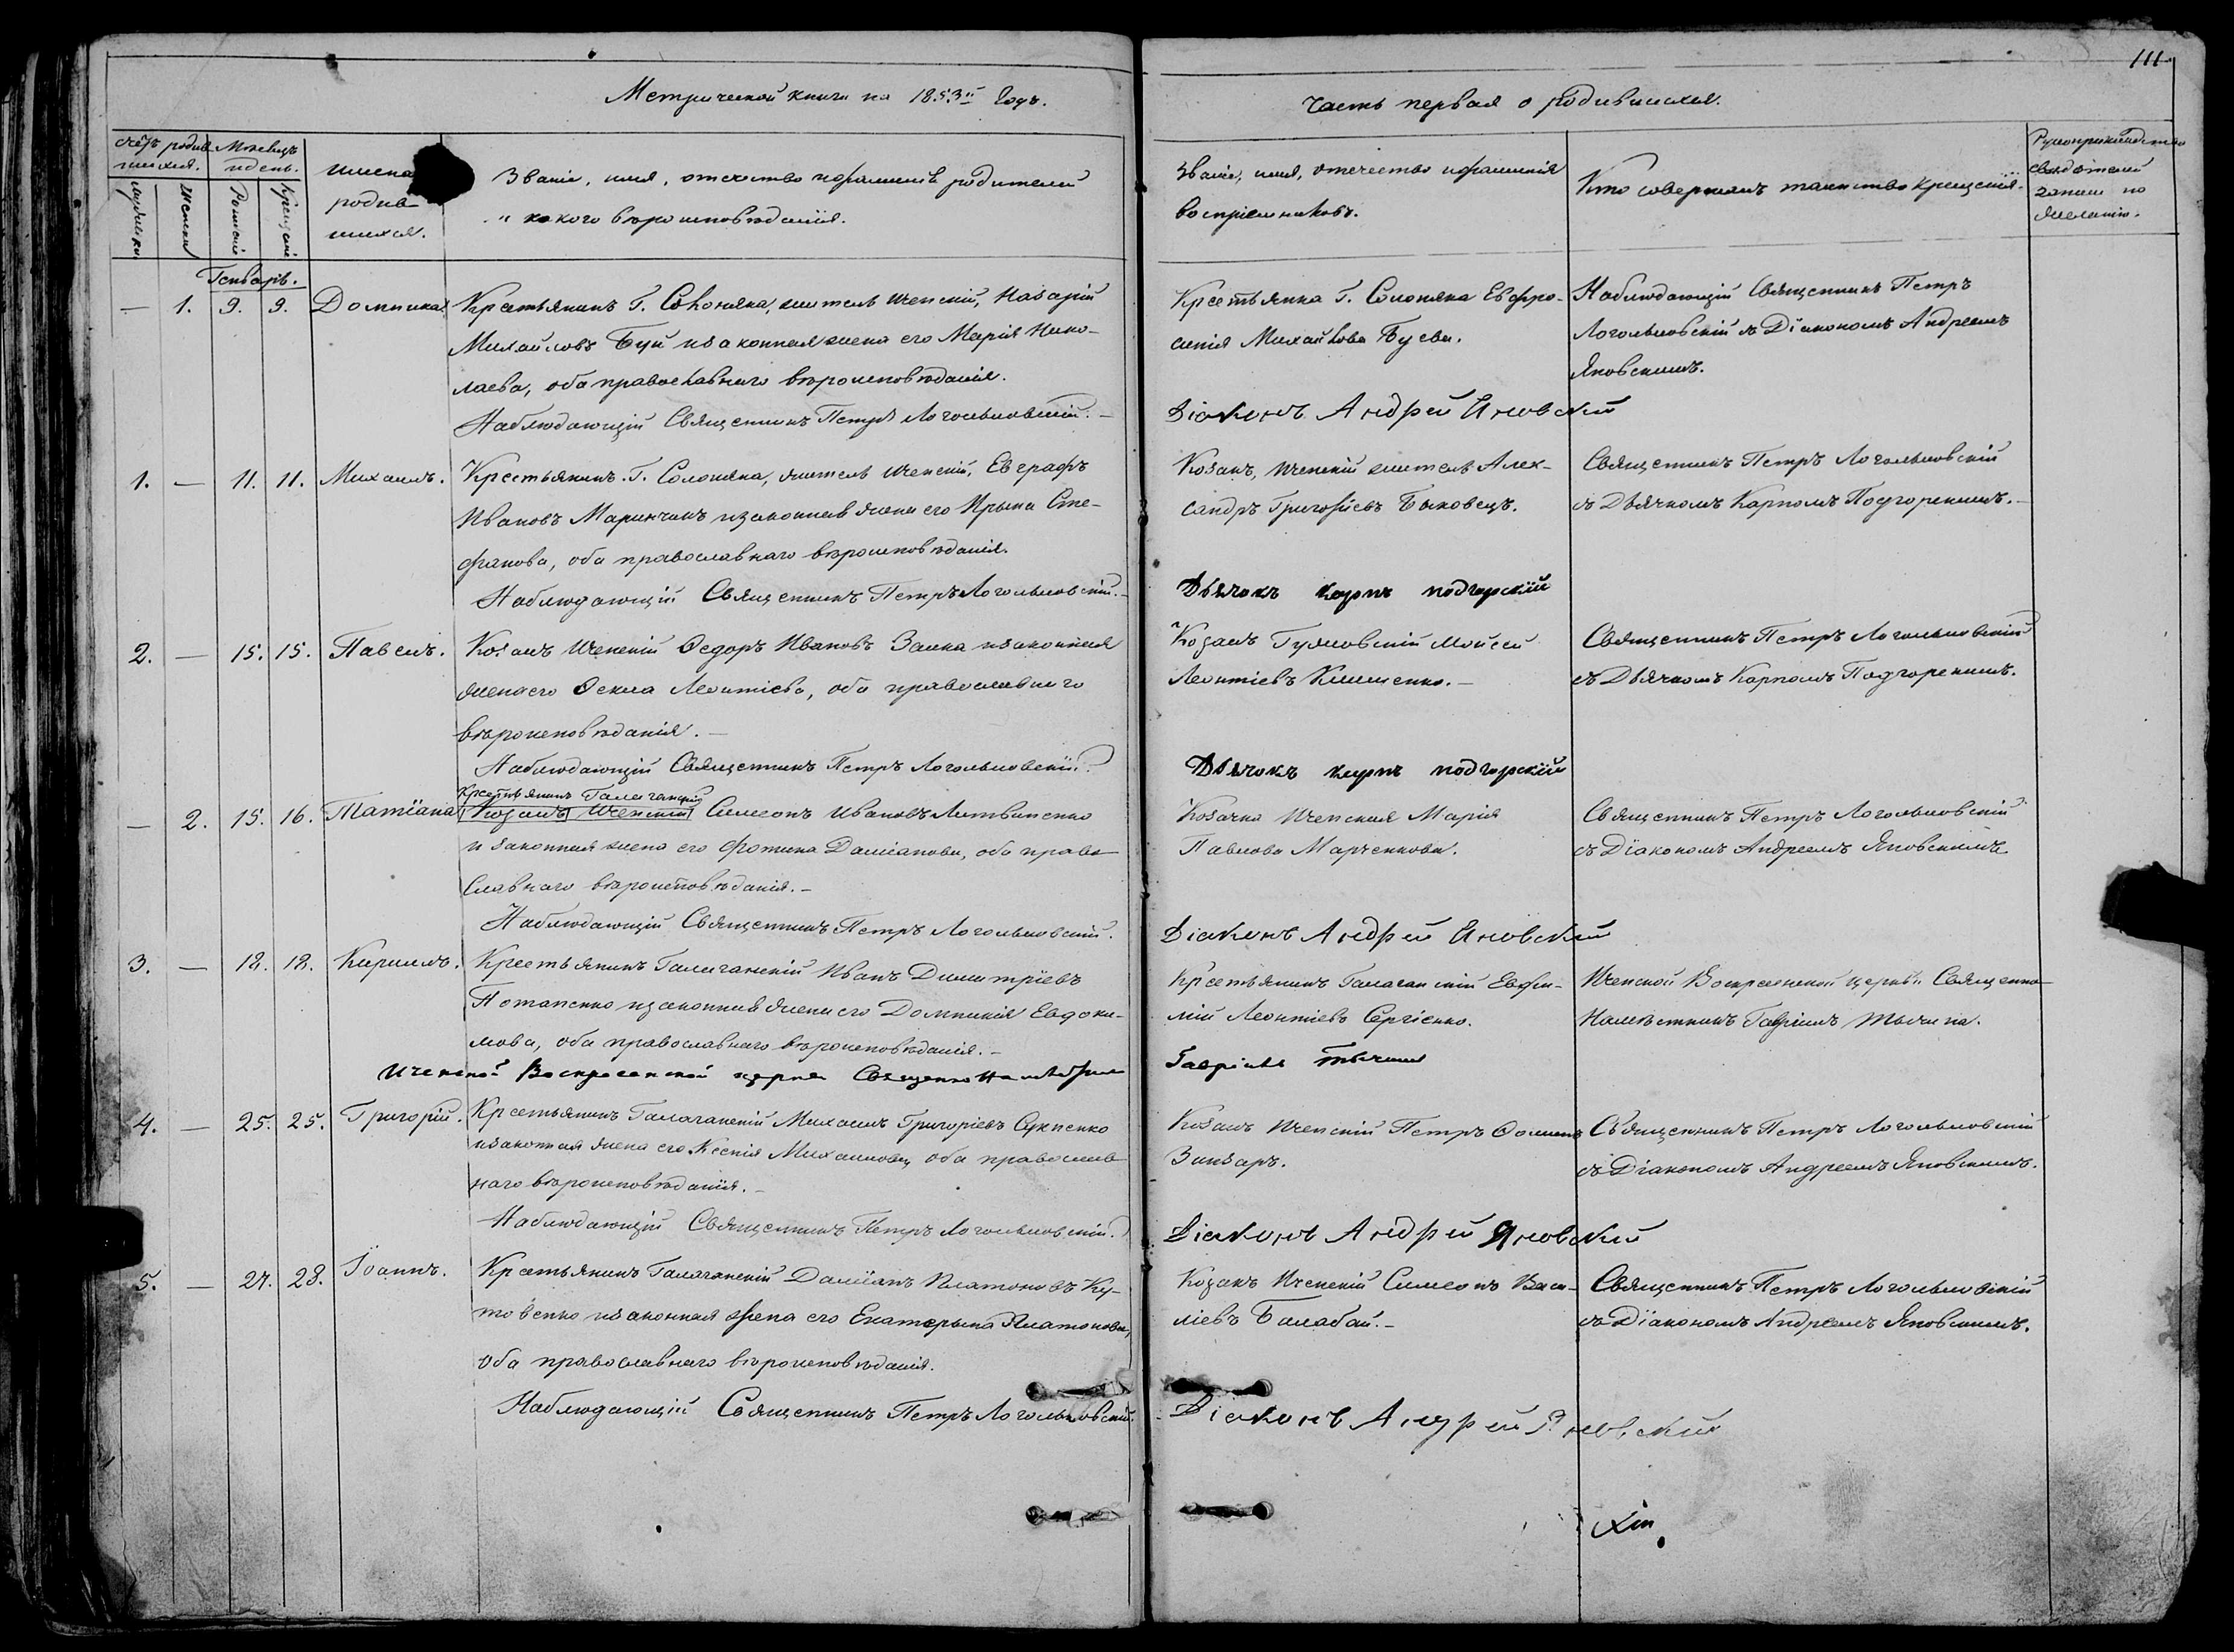 111
Метрической книги на 1853й Годъ.
Часть первая о родившихся.
счетъ родив
шихся.
Мѣсяцъ
и день.
имена
родив
шихся.
Званіе, имя, отечество и фамилія родителей
и какого вѣроисповѣданія.
Званіе, имя, отечество и фамилія
воспріемниковъ.
Кто совершалъ таинство крещенія.
Рукоприкладство
свидѣтелей
записи по
желанію.
Женска
Рожденія
Крещенія
Генварь.
— 1. 9. 9. Домникія
Крестьянинъ Г. Солонина, житель Иченскій, Назарій
Михайловъ Буй и законная жена его Марія Нико-
лаева, оба православнаго вѣроисповѣданія.
Наблюдающій Священникъ Петръ Логольковскій.
Крестьянка Г. Солонина Евфро-
синія Михайлова Буева.
Діаконъ Андрей Яновскій
Наблюдающій Священникъ Петръ
Логольковскій съ Діакономъ Андреемъ
Яновскимъ.
1. — 11. 11. Михаилъ.
Крестьянинъ Г. Солонина, житель Иченскій, Евграфъ
Ивановъ Маринчакъ и законная жена его Ирына Сте-
фанова, оба православнаго вѣроисповѣданія.
Наблюдающій Священникъ Петръ Логольковскій.
Козакъ, Иченскій житель Алек-
сандръ Григорьевъ Быковецъ.
Дьячокъ карпъ подгорскій
Священникъ Петръ Логольковскій
съ Дьячкомъ Карпомъ Подгорскимъ.
2. — 15. 15. Павелъ.
Козакъ Иченскій Ѳедоръ Ивановъ Заика и законная
жена его Ѳекла Леонтіева, оба православнаго
вѣроисповѣданія.
Наблюдающій Священникъ Петръ Логольковскій.
Козакъ Гужовскій Мойсей
Леонтіевъ Клищенко.
Дьячокъ карпъ подгорскій
Священникъ Петръ Логольковскій
съ Дьячкомъ Карпомъ Подгорскимъ.
Крестьянинъ Галаганскій
— 2. 15. 16. Татіана
Козакъ Иченскій Симеонъ Ивановъ Литвиненко
и законная жена его Фотина Даміанова, оба право
славнаго вѣроисповѣданія.
Наблюдающій Священникъ Петръ Логольковскій.
Козачка Иченская Марія
Павлова Марченкова.
Діаконъ Андрей Яновскій
Священникъ Петръ Логольковскій
съ Діакономъ Андреемъ Яновскимъ
3. — 18. 18. Кириллъ.
Крестьянинъ Галаганскій Иванъ Димитріевъ
Потапенко и законная жена его Домникія Евдоки-
мова, оба православнаго вѣроисповѣданія.
Иченской Воскресенской церкви Священно
Крестьянинъ Галаганскій Евфи-
мій Леонтіевъ Сергіенко.
Гавріилъ Тычина
Иченской Воскресенской церкви Священно
Намѣстникъ Гавріилъ Тычина.
4. — 25. 25. Григорій.
Крестьянинъ Галаганскій Михаилъ Григоріевъ
и законная жена его Ксенія Михаилова, оба православ
наго вѣроисповѣданія.
Наблюдающій Священникъ Петръ Логольковскій.
Козакъ Иченскій Петръ Ѳоминъ
Зинзаръ.
Діаконъ Андрей Яновскій
Священникъ Петръ Логольковскій
съ Діакономъ Андреемъ Яновскимъ.
5. — 27. 28. Іоаннъ.
Крестьянинъ Галаганскій Даміанъ Платоновъ Ку-
товенко и законная жена его Екатерына Платонова,
оба православнаго вѣроисповѣданія.
Наблюдающій Священникъ Петръ Логольковскій.
Козакъ Иченскій Симеонъ Васи-
ліевъ Балабай.
Діаконъ Андрей Яновскій
Священникъ Петръ Логольковскій
съ Діакономъ Андреемъ Яновскимъ.